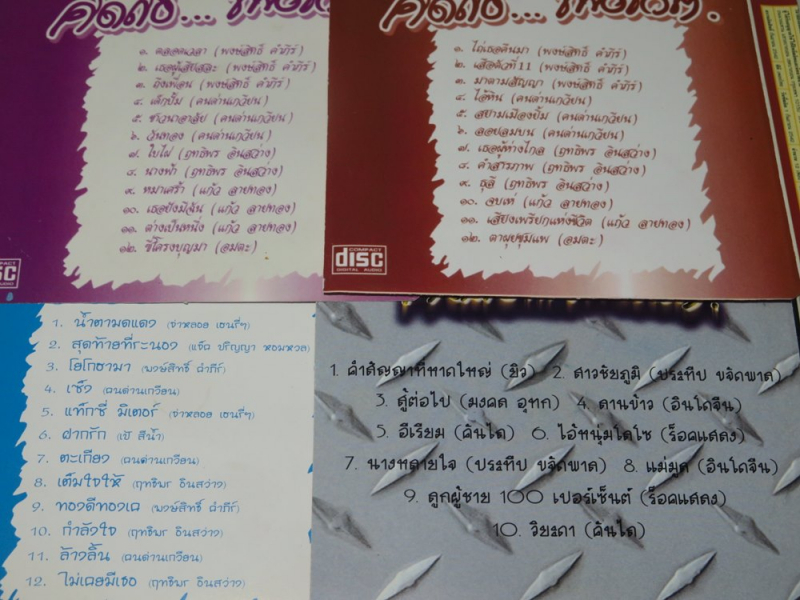 คิดถึง...
๑. ตลอดเวลา (พงษ์สิทธิ์ คำภีร์)
๒. เธอผู้เสียสละ (พงษ์สิทธิ์ คำภีร์)
๓. ถึงเพื่อน (พงษ์สิทธิ์ คำภีร์)
๔. เด็กปั๊ม (คนด่านเกวียน)
๕. ชาวนาอาลัย (คนด่านเกวียน)
๖. วันทอง (คนด่านเกวียน)
๗. ใบไผ่ (ฤทธิพร อินสว่าง)
๘. นางฟ้า (ฤทธิพร อินสว่าง)
๙. หมาเศร้า (แก้ว ลายทอง)
๑๐. เธอยังมีฉัน (แก้ว ลายทอง)
๑๑. ต่างเป็นหนึ่ง (แก้ว ลายทอง)
๑๒. ขี้โครงบุญมา (อมตะ)
disc
คิดถึง...
๑. ไถ่เธอคืนมา (พงษ์สิทธิ์ คำภีร์)
๒. เสือตัวที่ 11 (พงษ์สิทธิ์ คำภีร์)
๓. มาตามสัญญา (พงษ์สิทธิ์ คำภีร์)
๔. ไอ้ทิน (คนด่านเกวียน)
๕. สยามเมืองยิ้ม (คนด่านเกวียน)
๖. ลอยลมบน (คนด่านเกวียน)
๗. เธอผู้ห่างไกล (ฤทธิพร อินสว่าง)
๘. คำสารภาพ (ฤทธิพร อินสว่าง)
๙. ธุลี (ฤทธิพร อินสว่าง)
๑๐. จบเห่ (แก้ว ลายทอง)
๑๑. เสียงเพรียกแห่งชีวิต (แก้ว ลายทอง)
๑๒. ตาผุยชุมแพ (อมตะ)
COMPACT
disc
DIGITAL AUDIO
1. น้ำตามดแดง (จ่าหลอย เฮนรี่ๆ)
2. สุดท้ายที่ระนอง (แจ๊ค ปริญญา หอมหวล)
3. โยโกฮามา (พงษ์สิทธิ์ คำภีร์)
4. เซ้ง (คนด่านเกวียน)
5. แท็กซี่ มิเตอร์ (จ่าหลอย เฮนรี่ๆ)
6. ฝากรัก (เป้ สีน้ำ)
7. ตะเกียง (คนด่านเกวียน)
8. เต็มใจให้ (ฤทธิพร อินสว่าง)
9. ทองดีทองเค (พงษ์สิทธิ์ คำภีร์)
10. กำลังใจ (ฤทธิพร อินสว่าง)
11. ล้างลิ้น (คนด่านเกวียน)
12. ไม่เคยมีเธอ (ฤทธิพร อินสว่าง)
1. คำสัญญาที่หาดใหญ่ (ยิว) 2. สาวชัยภูมิ (ประทีป ขจัดพาล)
3. ตู้ต่อไป (มงคล อุทก) 4. ลานข้าว (อินโดจีน)
5. อีเรียม (คันไถ) 6. ไอ้หนุ่มโตโซ (ร็อคแสลง)
7. นางหลายใจ (ประทีป ขจัดพาล) 8. แม่มูล (อินโดจีน)
9. ลูกผู้ชาย 100 เปอร์เซ็นต์ (ร็อคแสลง)
10. วิยะดา (คันไถ)